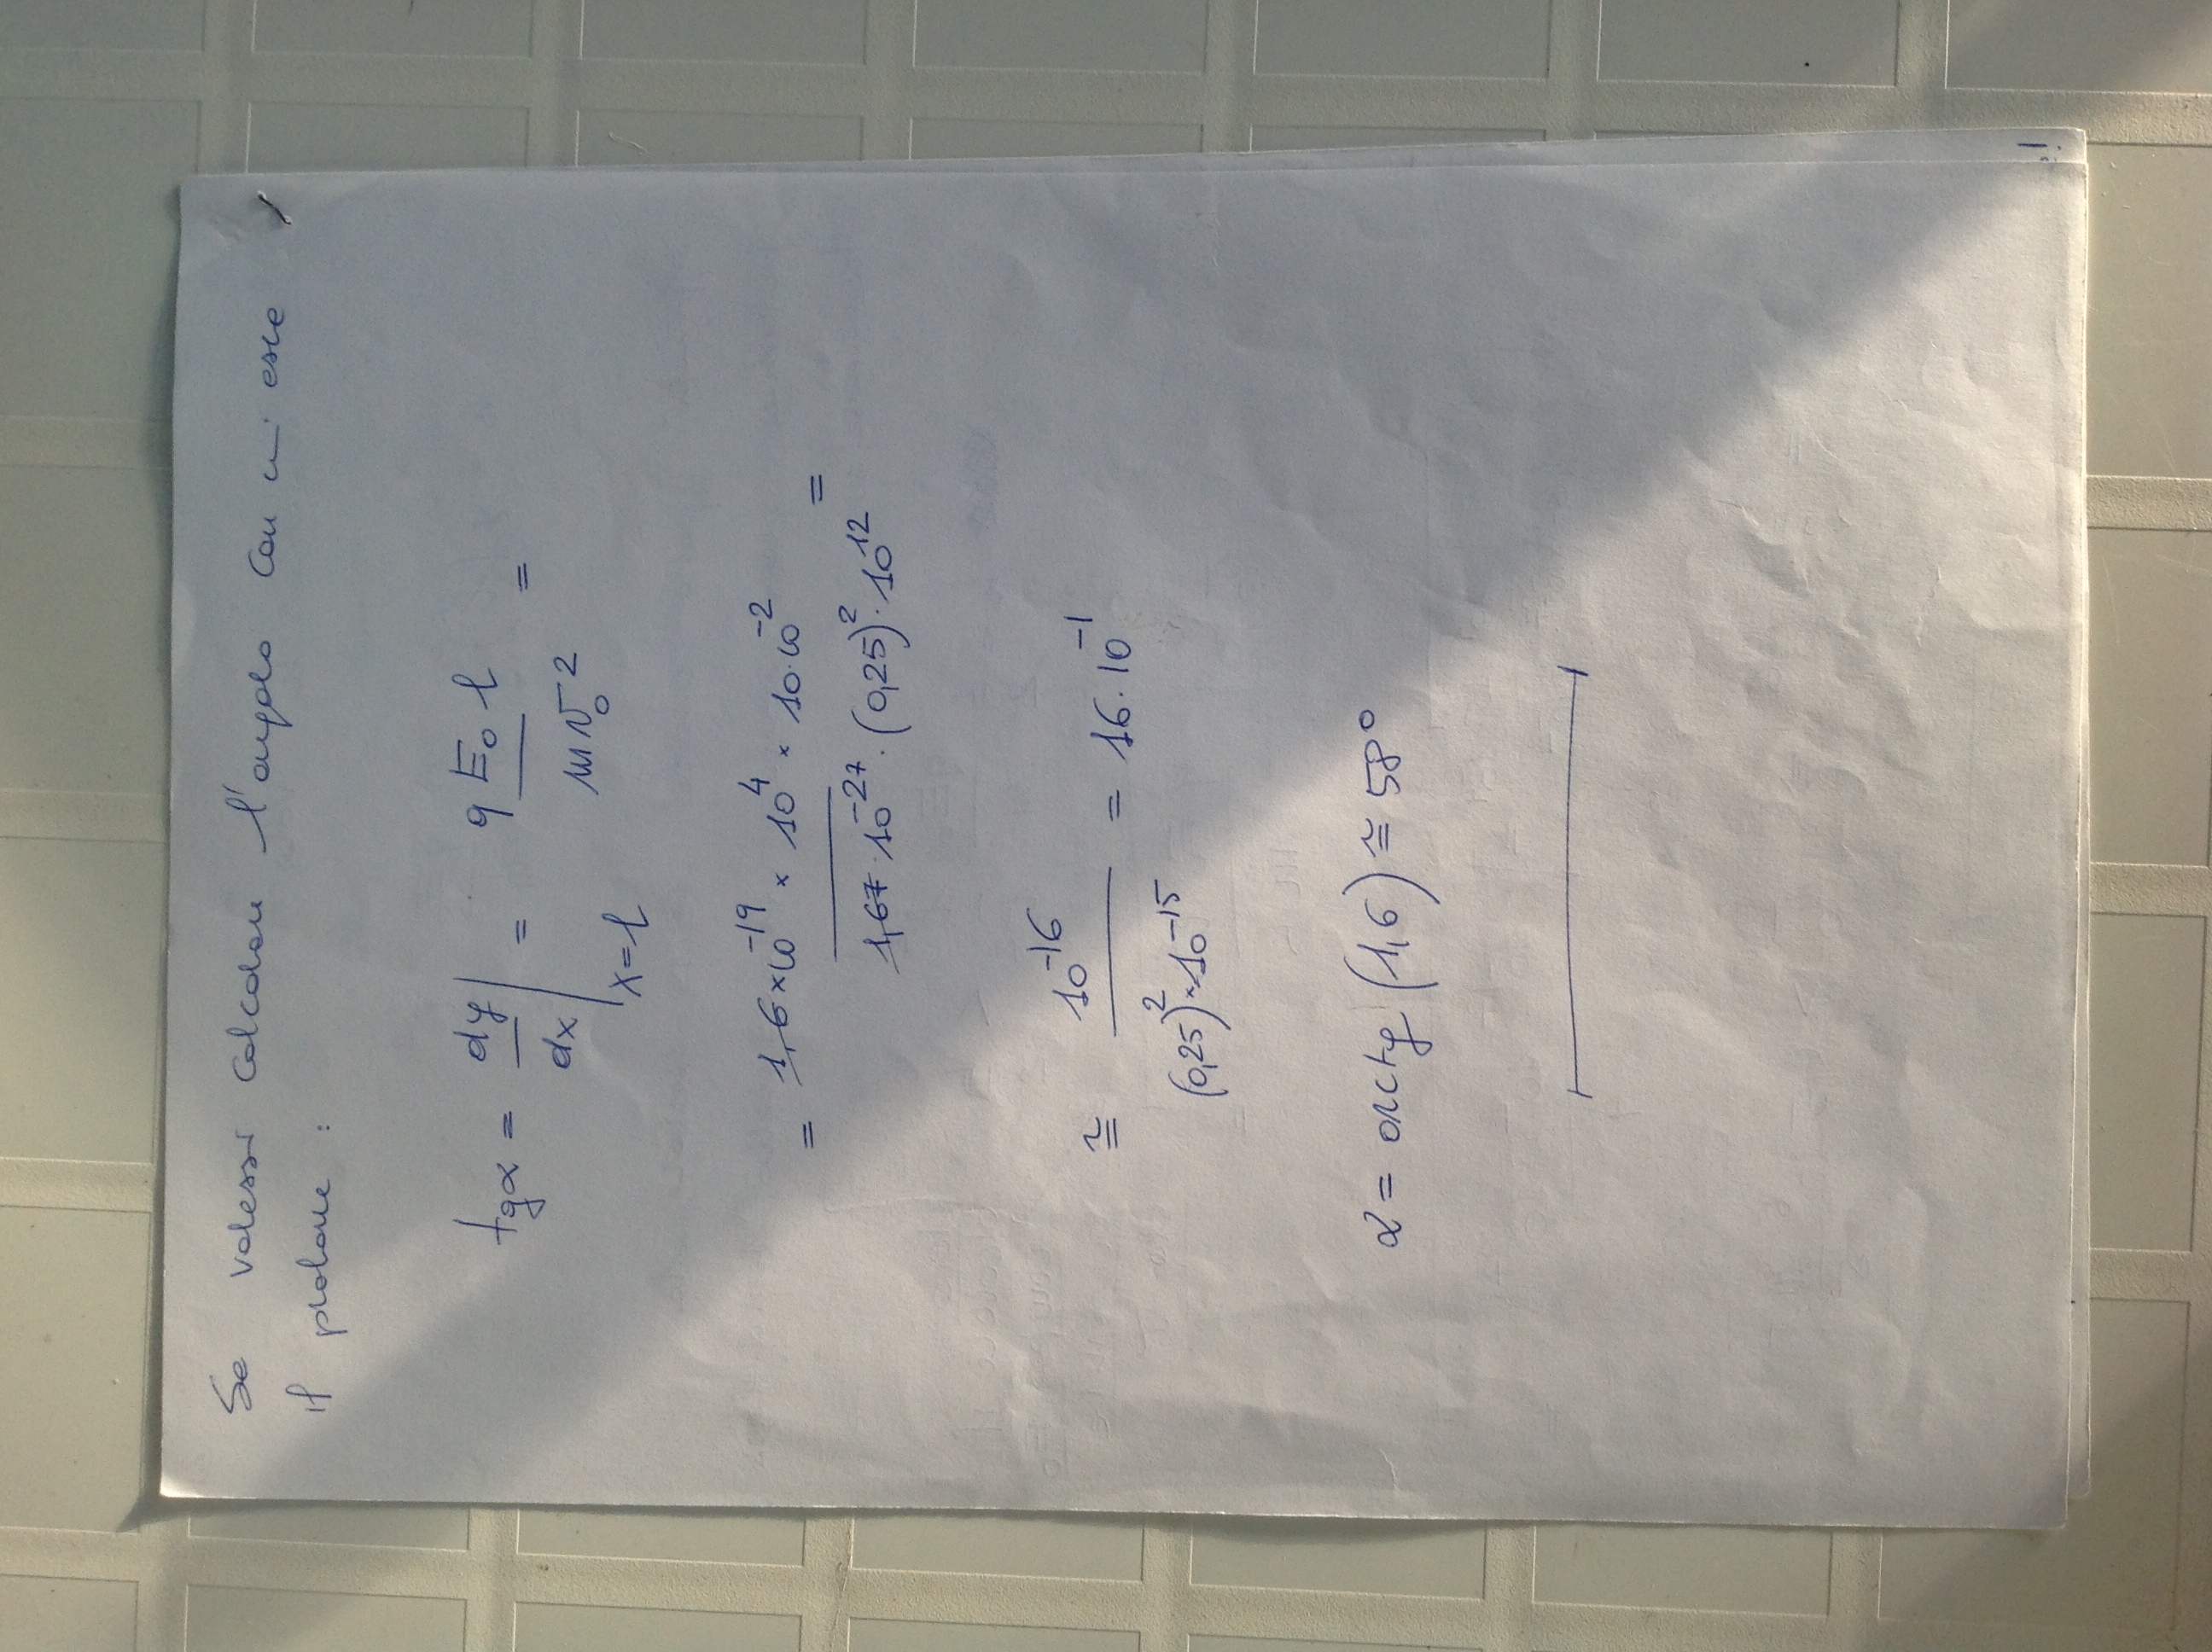 Se volessi calcolare l'angolo con cui esce
il protone :
tgα = dy/dx |x=l = q E₀ l / m v₀² =
= 1,6×10⁻¹⁹ × 10⁴ × 10·10⁻² / 1,67·10⁻²⁷·(0,25)²·10¹² =
≅ 10⁻¹⁶ / (0,25)²×10⁻¹⁵ = 16·10⁻¹
α = arctg (1,6) ≅ 58°